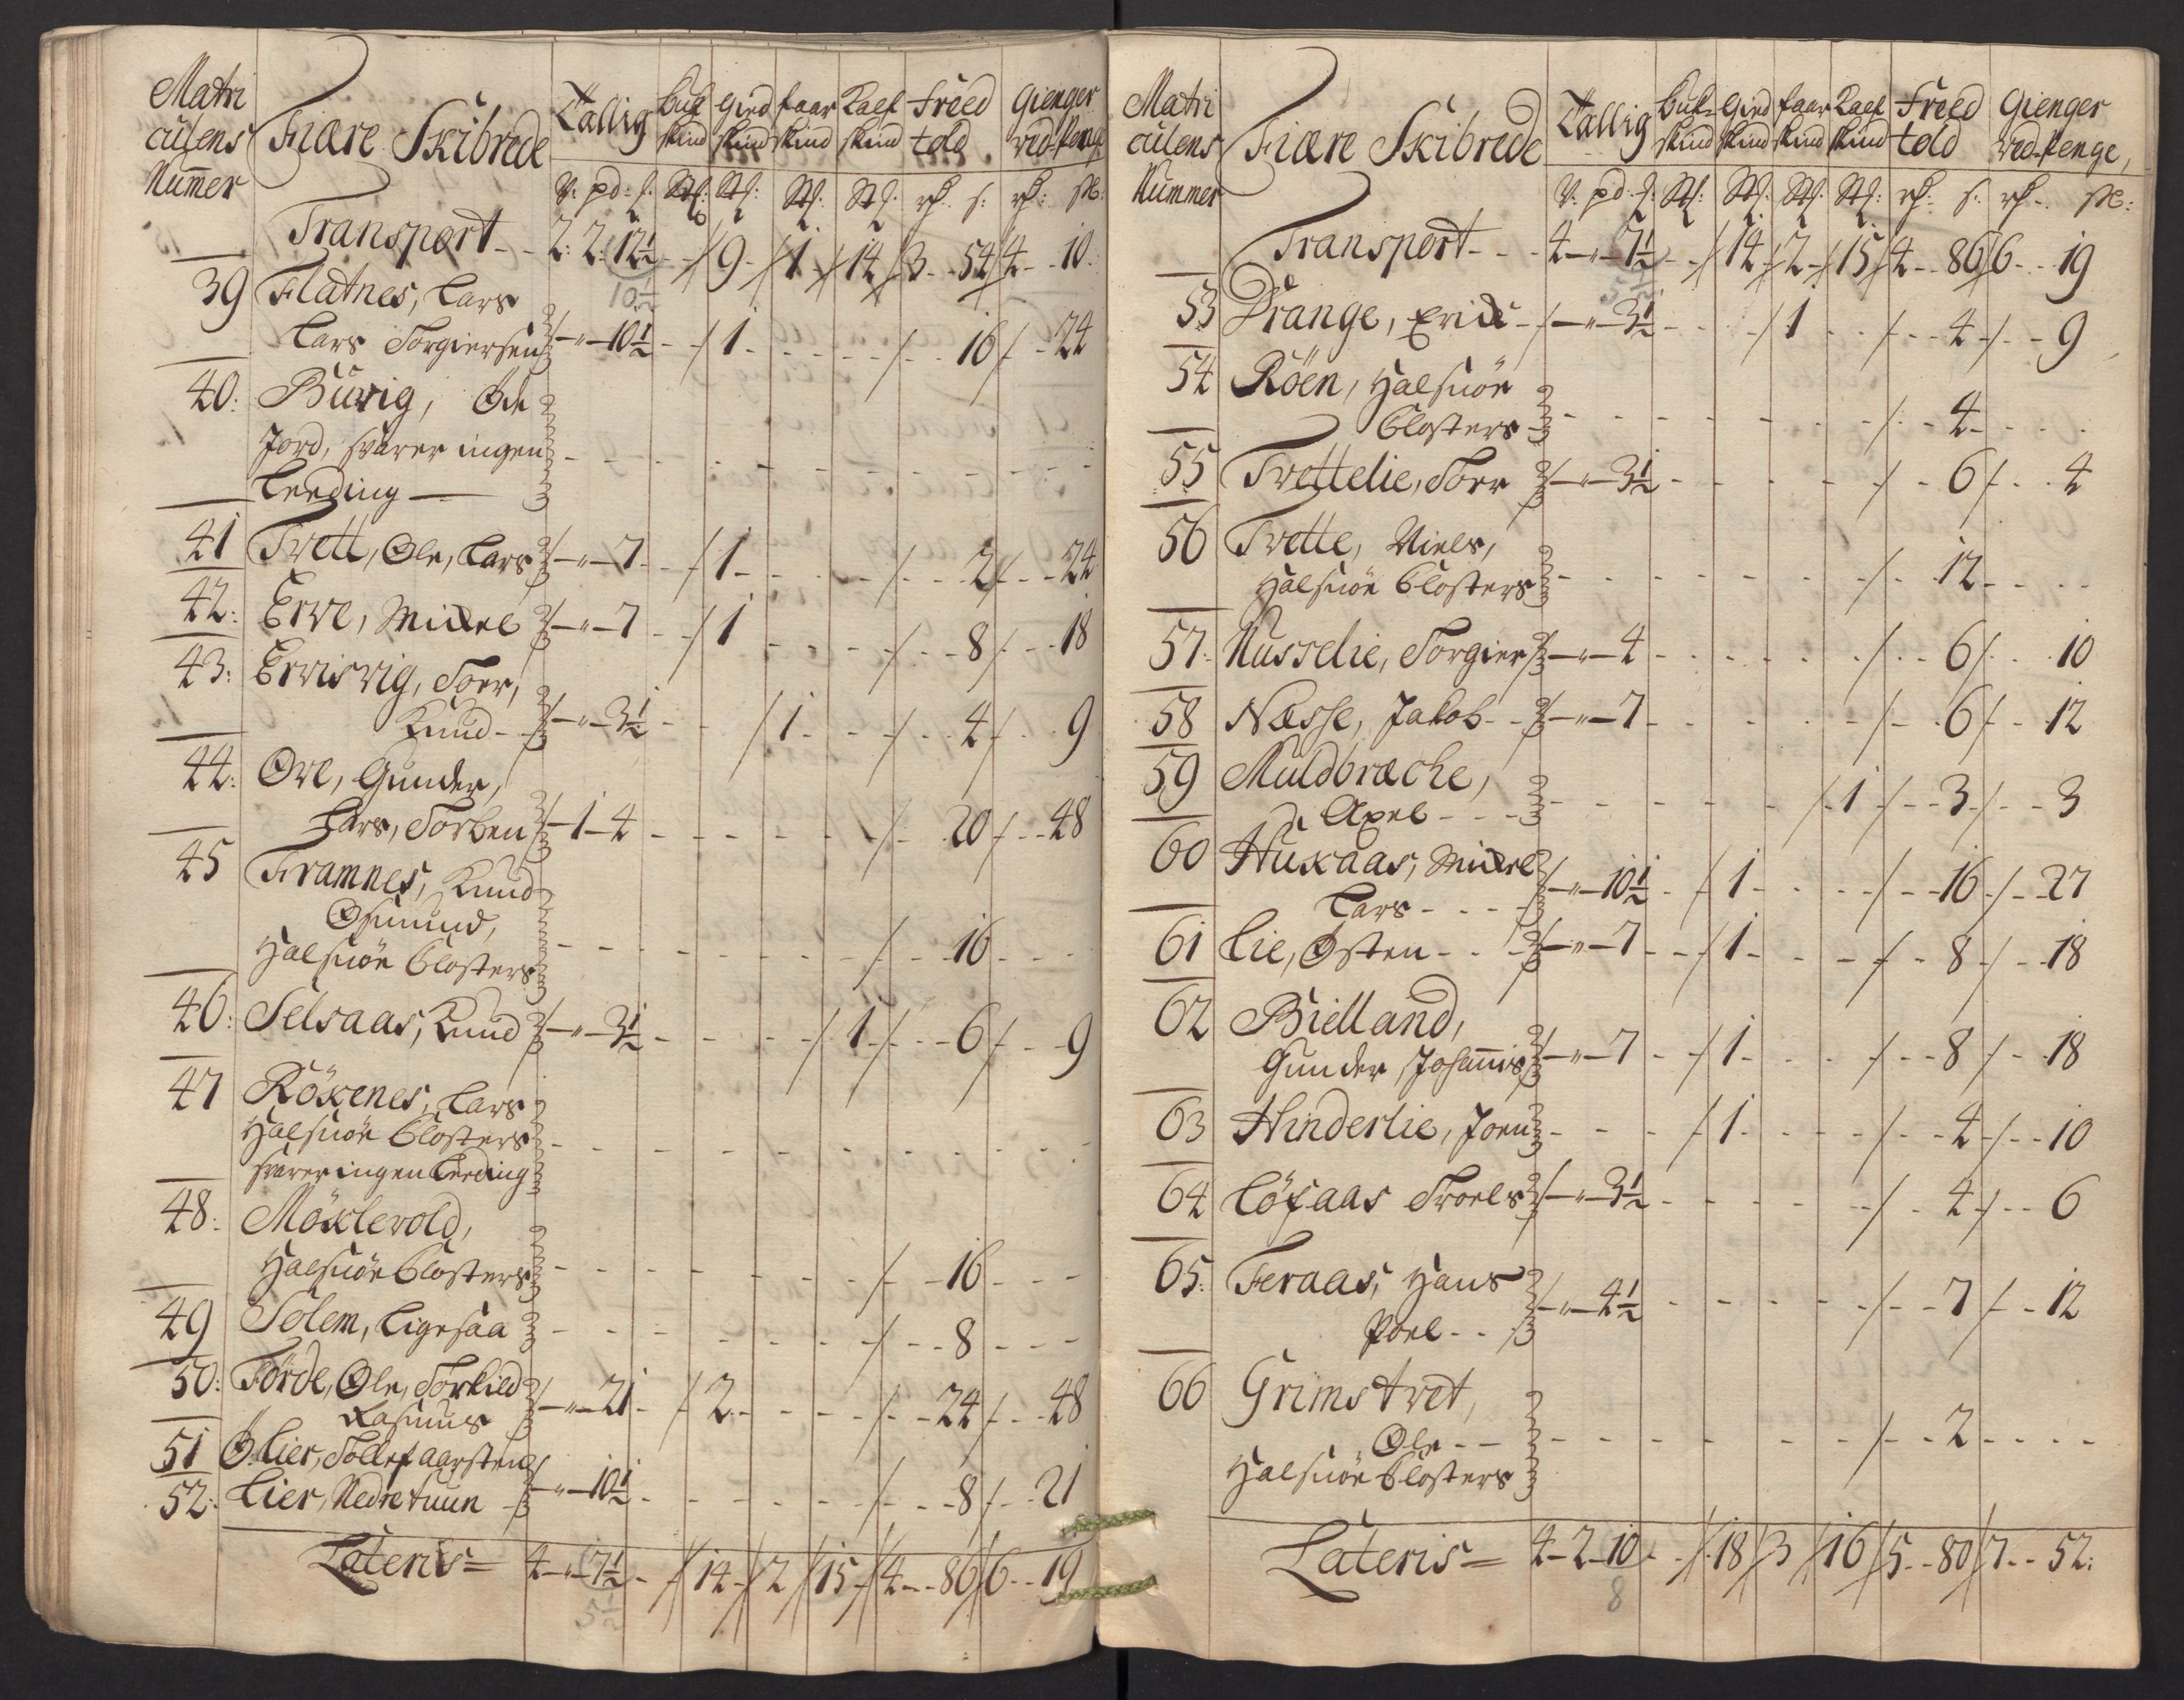 Matri
culens
Nummer
Fiære Skibrede
Tallig
Buk skind
Gied skind
faar skind
Kalf skind
Freed told
Gienger ved Penge
V. pd. Stk: Stk: Stk: Stk: s: rh:
Transport - - 2: 2: 12½ - 9 - 1 - 14 3 - 54 4 - 10
10½
39 Flatnes, Lars
Lars Torgiersen - " - 10½ - 1 - - - 16 - 24
40: Buvig, Øde
Jord, svarer ingen
Leeding
41 Tvett, Ole, Lars - " - 7 - 1 - - - 2 - 24
42: Erve, Mickel - " - 7 - 1 - - - 8 - 18
43: Ervisvig, Toer,
Knud - - " - 3½ - - 1 - - 4 - 9
44: Ove, Gunder,
Lars, Torben - 1 - 4 - - - 20 - 48
45 Framnes, Knud
Osmund,
Halsnöe Closters - - - 16 - - -
46: Selsaas, Knud - " - 3½ - - - 1 - 6 - 9
47 Röxenes, Lars
Halsnöe Closters
svarer ingen Leeding
48: Möxlevold,
Halsnöe Closters - - - 16 - - -
49 Solem, Ligesaa - - - 8 - - -
50: Förde, Ole, Torkild
Rasmus - " - 21 - 2 - - - 24 - 48
51 Ölier, Tollef Aarsten
52: Lier, Nedre tuun - " - 10½ - - - 8 - 21
Lateris = 4 - " - 7½ - 14 - 2 15 - 4 - - 86 6 - - 19
5½
Matri
culens
Nummer
Fiære Skibrede
Tallig
Buk skind
Gied skind
faar skind
Kalf skind
Freed told
Gienger ved Penge,
V. pd. Stk: Stk: Stk: Stk: rh: s. rh:
Transport - - - 4 - " - 7½ - 14 - 2 - 15 4 - - 86 6 - - 19
5½
53 Drange, Erick - " - 3½ - - - 1 - - 4 - - 9
54 Röen, Halsnöe
Closters - - - 4 - - -
55 Tvettelie, Toer - " - 3½ - - - 6 - - 4
56 Tvette, Niels,
Halsnöe Closters - - - 12 - - -
57: Nusselie, Torgier - " - 4 - - - 6 - - 10
58 Næsse, Jakob - - " - 7 - - - 6 - - 12
59 Muldbræche,
Axel - - - - - 1 - - 3 - - 3
60 Huxaas, Mickel
Lars - - - " - 10½ - 1 - - - 16 - - 27
61 Lie, Östen - - " - 7 - - 1 - - - 8 - - 18
62 Bielland,
Gunder, Johannis - " - 7 - 1 - - - 8 - - 18
63 Hinderlie, Joen - - - 1 - - - 4 - - 10
64 Löfaas Troels - " - 3½ - - - 4 - - 6
65: Feraas, Hans
Poel - - " - 4½ - - - 7 - - 12
66 Grimstvet,
Ole - -
Halsnöe Closters - - - 2 - - - -
Lateris = 4 - 2 - 10 - - 18 3 16 5 - - 80 7 - - 52:
8